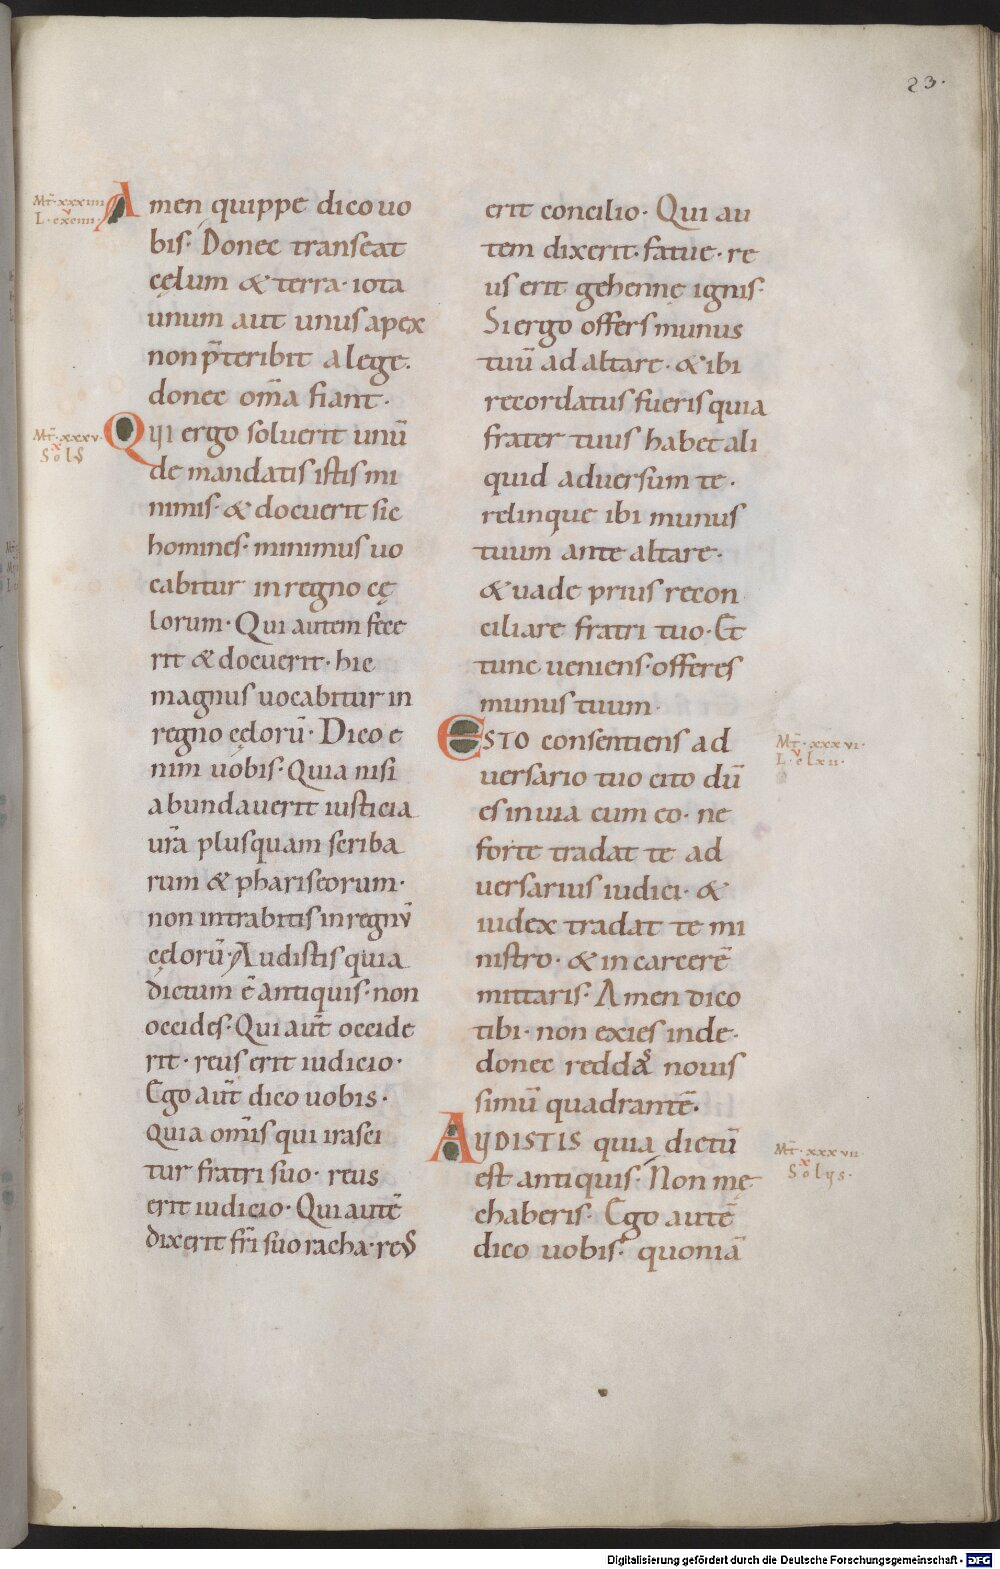 23.
Mt̄·xxxiiii
L·cxciiii·
Amen quippe dico uo
bis· Donec transeat
cęlum & terra· iota
unum aut unus apex
non p̄teribit a lege.
donec om̄a fiant·
Mt̄·xxxv·
Solꝰ
Qui ergo soluerit unū
de mandatis istis mi
nimis· & docuerit sic
homines· minimus uo
cabitur in regno cę
lorum· Qui autem fece
rit & docuerit· hic
magnus uocabitur in
regno cęlorū· Dico e
nim uobis· Quia nisi
abundauerit iusticia
ur̄a plusquam scriba
rum & phariseorum·
non intrabitis in regnū
cęlorū· Audistis quia
dictum ē antiquis· non
occides· Qui aut̄ occide
rit· reus erit iudicio·
Ego aut̄ dico uobis·
quia om̄is qui irasci
tur fratri suo· reus
erit iudicio· Qui autē
dixerit fr̄i suo racha· reꝰ
erit concilio· Qui au
tem dixerit· fatue· re
us erit gehennę ignis·
Si ergo offers munus
tuū ad altare· & ibi
recordatus fueris quia
frater tuus habet ali
quid aduersum te·
relinque ibi munus
tuum ante altare·
& uade prius recon
ciliare fratri tuo· Et
tunc ueniens· offeres
munus tuum·
ESTO consentiens ad
uersario tuo cito dū
es in uia cum eo· ne
forte tradat te ad
uersarius iudici· &
iudex tradat te mi
nistro· & in carcerē
mittaris· Amen dico
tibi· non exies inde·
donec redd&s nouis
simū quadrantē·
Mt̄·xxxvi·
L·clxii·
AUDISTIS quia dictū
est antiquis· Non mę
chaberis· Ego autē
dico uobis· quoniā
Mt̄·xxxvii
Solus·
Digitalisierung gefördert durch die Deutsche Forschungsgemeinschaft - DFG